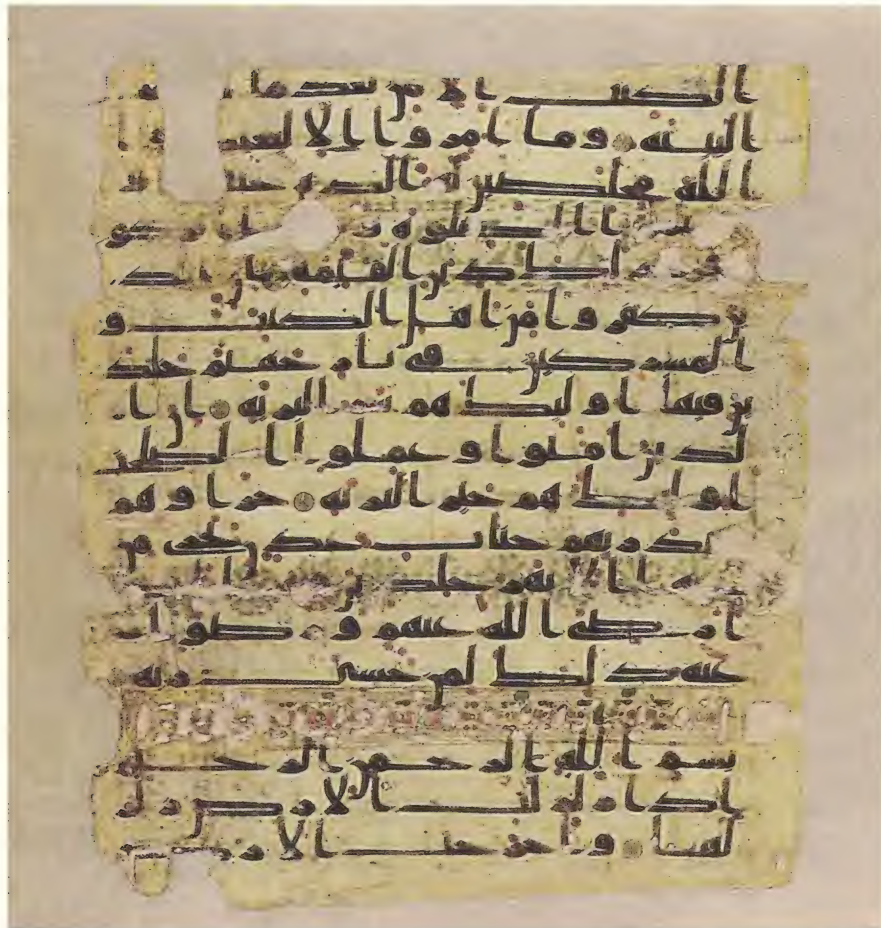 الكتب الا من بعد ما
البينه وما امروا الا ليعبدوا
الله مخلصين له الدين حنفا
الصلوه و الزكو
دين القيمه ان الذ
ين كفروا من اهل الكتب و
المشركين في نار جهنم خلد
ين فيها اوليك هم شر البريه ان ا
لذين امنوا وعملوا الصلحت
اوليك هم خير البريه جزاوهم
عند ربهم جنت عدن تجري من
الانهر خلدين
رضي الله عنهم ورضوا
عنه ذلك لمن خشي ربه
بسم الله الرحمن الرحيم
اذا زلزلت الارض زلزا
لها واخرجت الارض